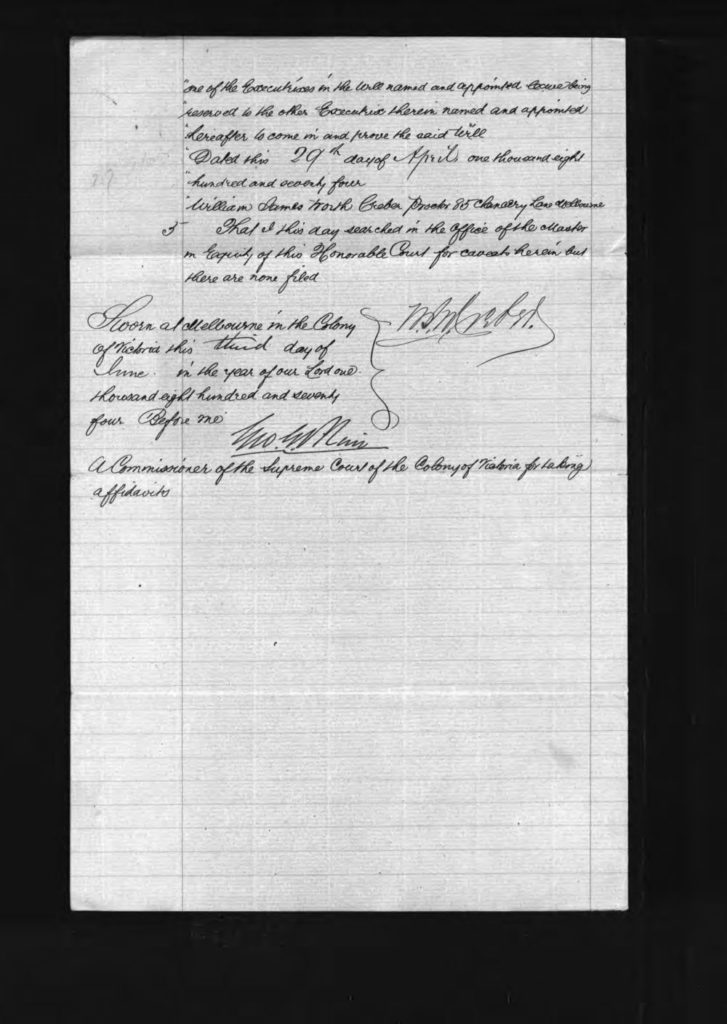 "one of the Executrixes in the Will named and appointed leave being
"reserved to the other Executrix therein named and appointed
"hereafter to come in and prove the said Will
"Dated this 29th day of April one thousand eight
"hundred and seventy four
"William James North Creber Proctor 85 Chancery Lane Melbourne
5 That I this day searched in the Office of the Master
in Equity of this Honorable Court for caveats herein but
there are none filed
Sworn at Melbourne in the Colony
of Victoria this third day of
June in the year of our Lord one
thousand eight hundred and seventy
four Before me
Geo.
A Commissioner of the Supreme Court of the Colony of Victoria for taking
affidavits